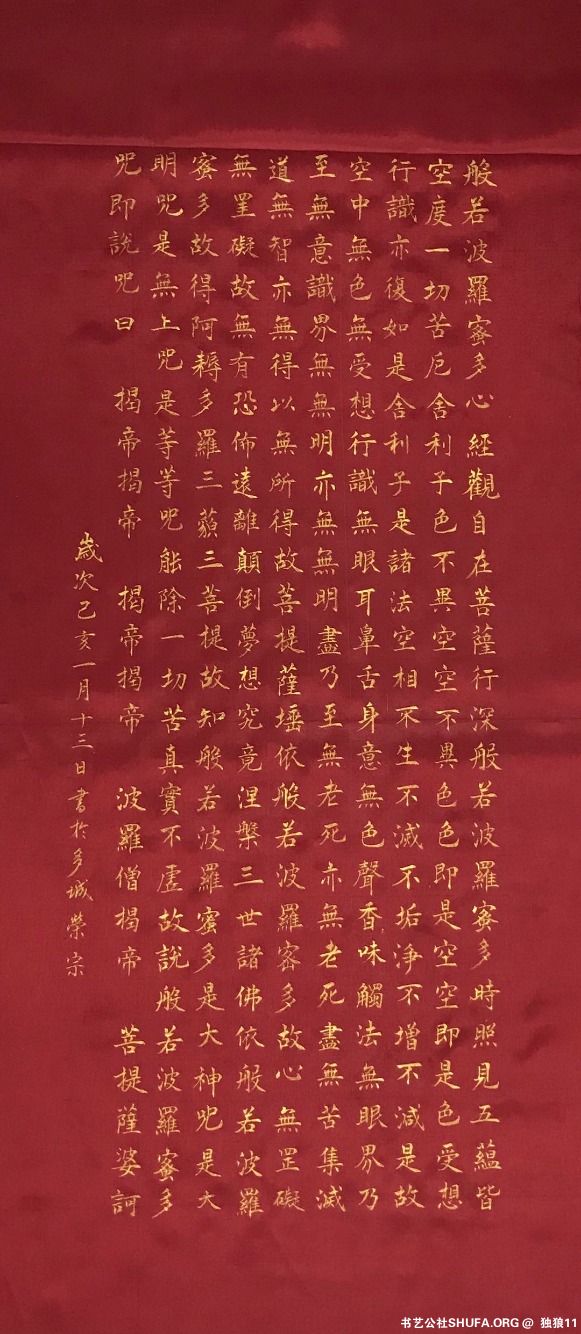 般若波羅蜜多心經觀自在菩薩行深般若波羅蜜多時照見五蘊皆
空度一切苦厄舍利子色不異空空不異色色即是空空即是色受想
行識亦復如是舍利子是諸法空相不生不滅不垢淨不增不減是故
空中無色無受想行識無眼耳鼻舌身意無色聲香味觸法無眼界乃
至無意識界無無明亦無無明盡乃至無老死亦無老死盡無苦集滅
道無智亦無得以無所得故菩提薩埵依般若波羅密多故心無罣礙
無罣礙故無有恐佈遠離顛倒夢想究竟涅槃三世諸佛依般若波羅
蜜多故得阿耨多羅三藐三菩提故知般若波羅蜜多是大神咒是大
明咒是無上咒是等等咒能除一切苦真實不虛故說般若波羅蜜多
咒即說咒曰 揭帝揭帝 揭帝揭帝 波羅僧揭帝 菩提薩婆訶
歲次己亥一月十三日書於多城榮宗
书艺公社SHUFA.ORG @ 独狼11